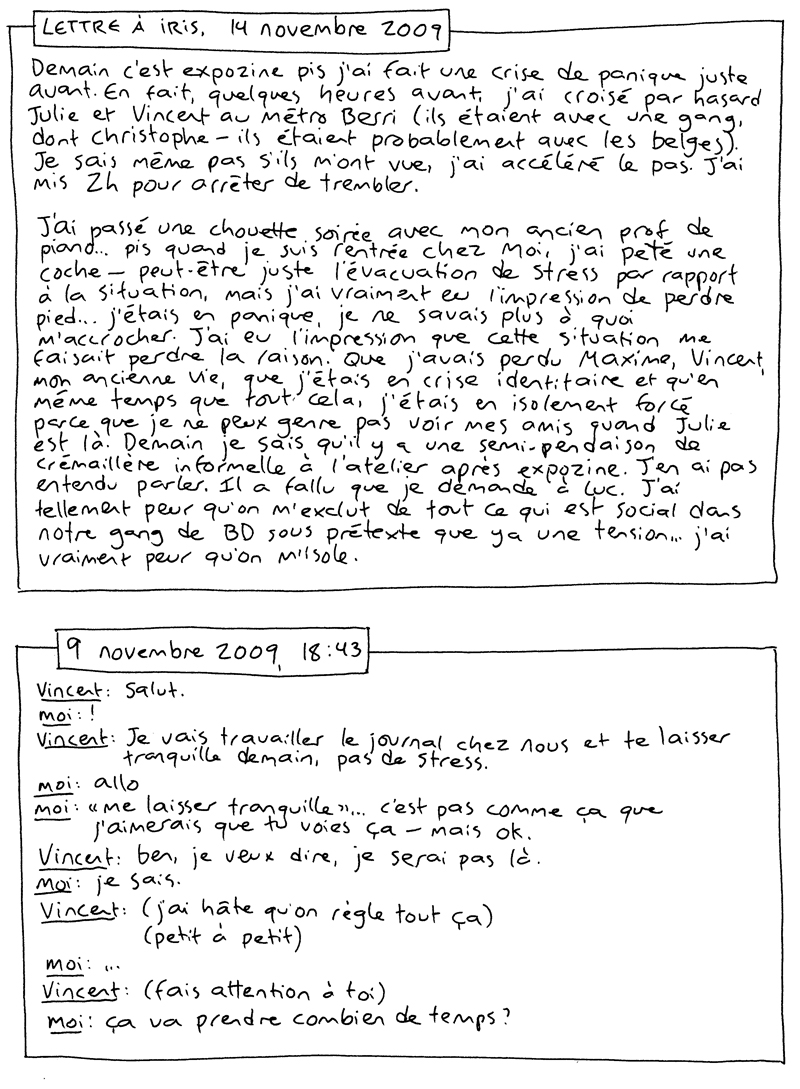 LETTRE À IRIS, 14 novembre 2009
Demain c'est expozine pis j'ai fait une crise de panique juste
avant. En fait, quelques heures avant, j'ai croisé par hasard
Julie et Vincent au métro Berri (ils étaient avec une gang,
dont Christophe – ils étaient probablement avec les belges).
Je sais même pas s'ils m'ont vue, j'ai accéléré le pas. J'ai
mis 2h pour arrêter de trembler.
J'ai passé une chouette soirée avec mon ancien prof de
piano... pis quand je suis rentrée chez moi, j'ai peté une
coche – peut-être juste l'évacuation de stress par rapport
à la situation, mais j'ai vraiment eu l'impression de perdre
pied... j'étais en panique, je ne savais plus à quoi
m'accrocher. J'ai eu l'impression que cette situation me
faisait perdre la raison. Que j'avais perdu Maxime, Vincent,
mon ancienne vie, que j'étais en crise identitaire et qu'en
même temps que tout cela, j'étais en isolement forcé
parce que je ne peux genre pas voir mes amis quand Julie
est là. Demain je sais qu'il y a une semi-pendaison de
crémaillère informelle à l'atelier après expozine. J'en ai pas
entendu parler. Il a fallu que je demande à Luc. J'ai
tellement peur qu'on m'exclut de tout ce qui est social dans
notre gang de BD sous prétexte que ya une tension... j'ai
vraiment peur qu'on m'isole.
9 novembre 2009, 18:43
Vincent: Salut.
moi: !
Vincent: Je vais travailler le journal chez nous et te laisser
tranquille demain, pas de stress.
moi: allo
moi: «me laisser tranquille»... c'est pas comme ça que
j'aimerais que tu voies ça – mais ok.
Vincent: ben, je veux dire, je serai pas là.
Moi: je sais.
Vincent: (j'ai hâte qu'on règle tout ça)
(petit à petit)
moi: ...
Vincent: (fais attention à toi)
Moi: ça va prendre combien de temps?